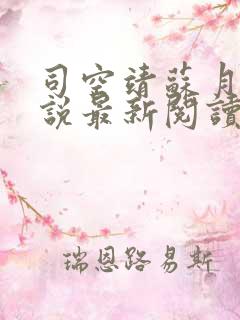 司空靖蘇月
說最新閱讀
瑞恩路易斯